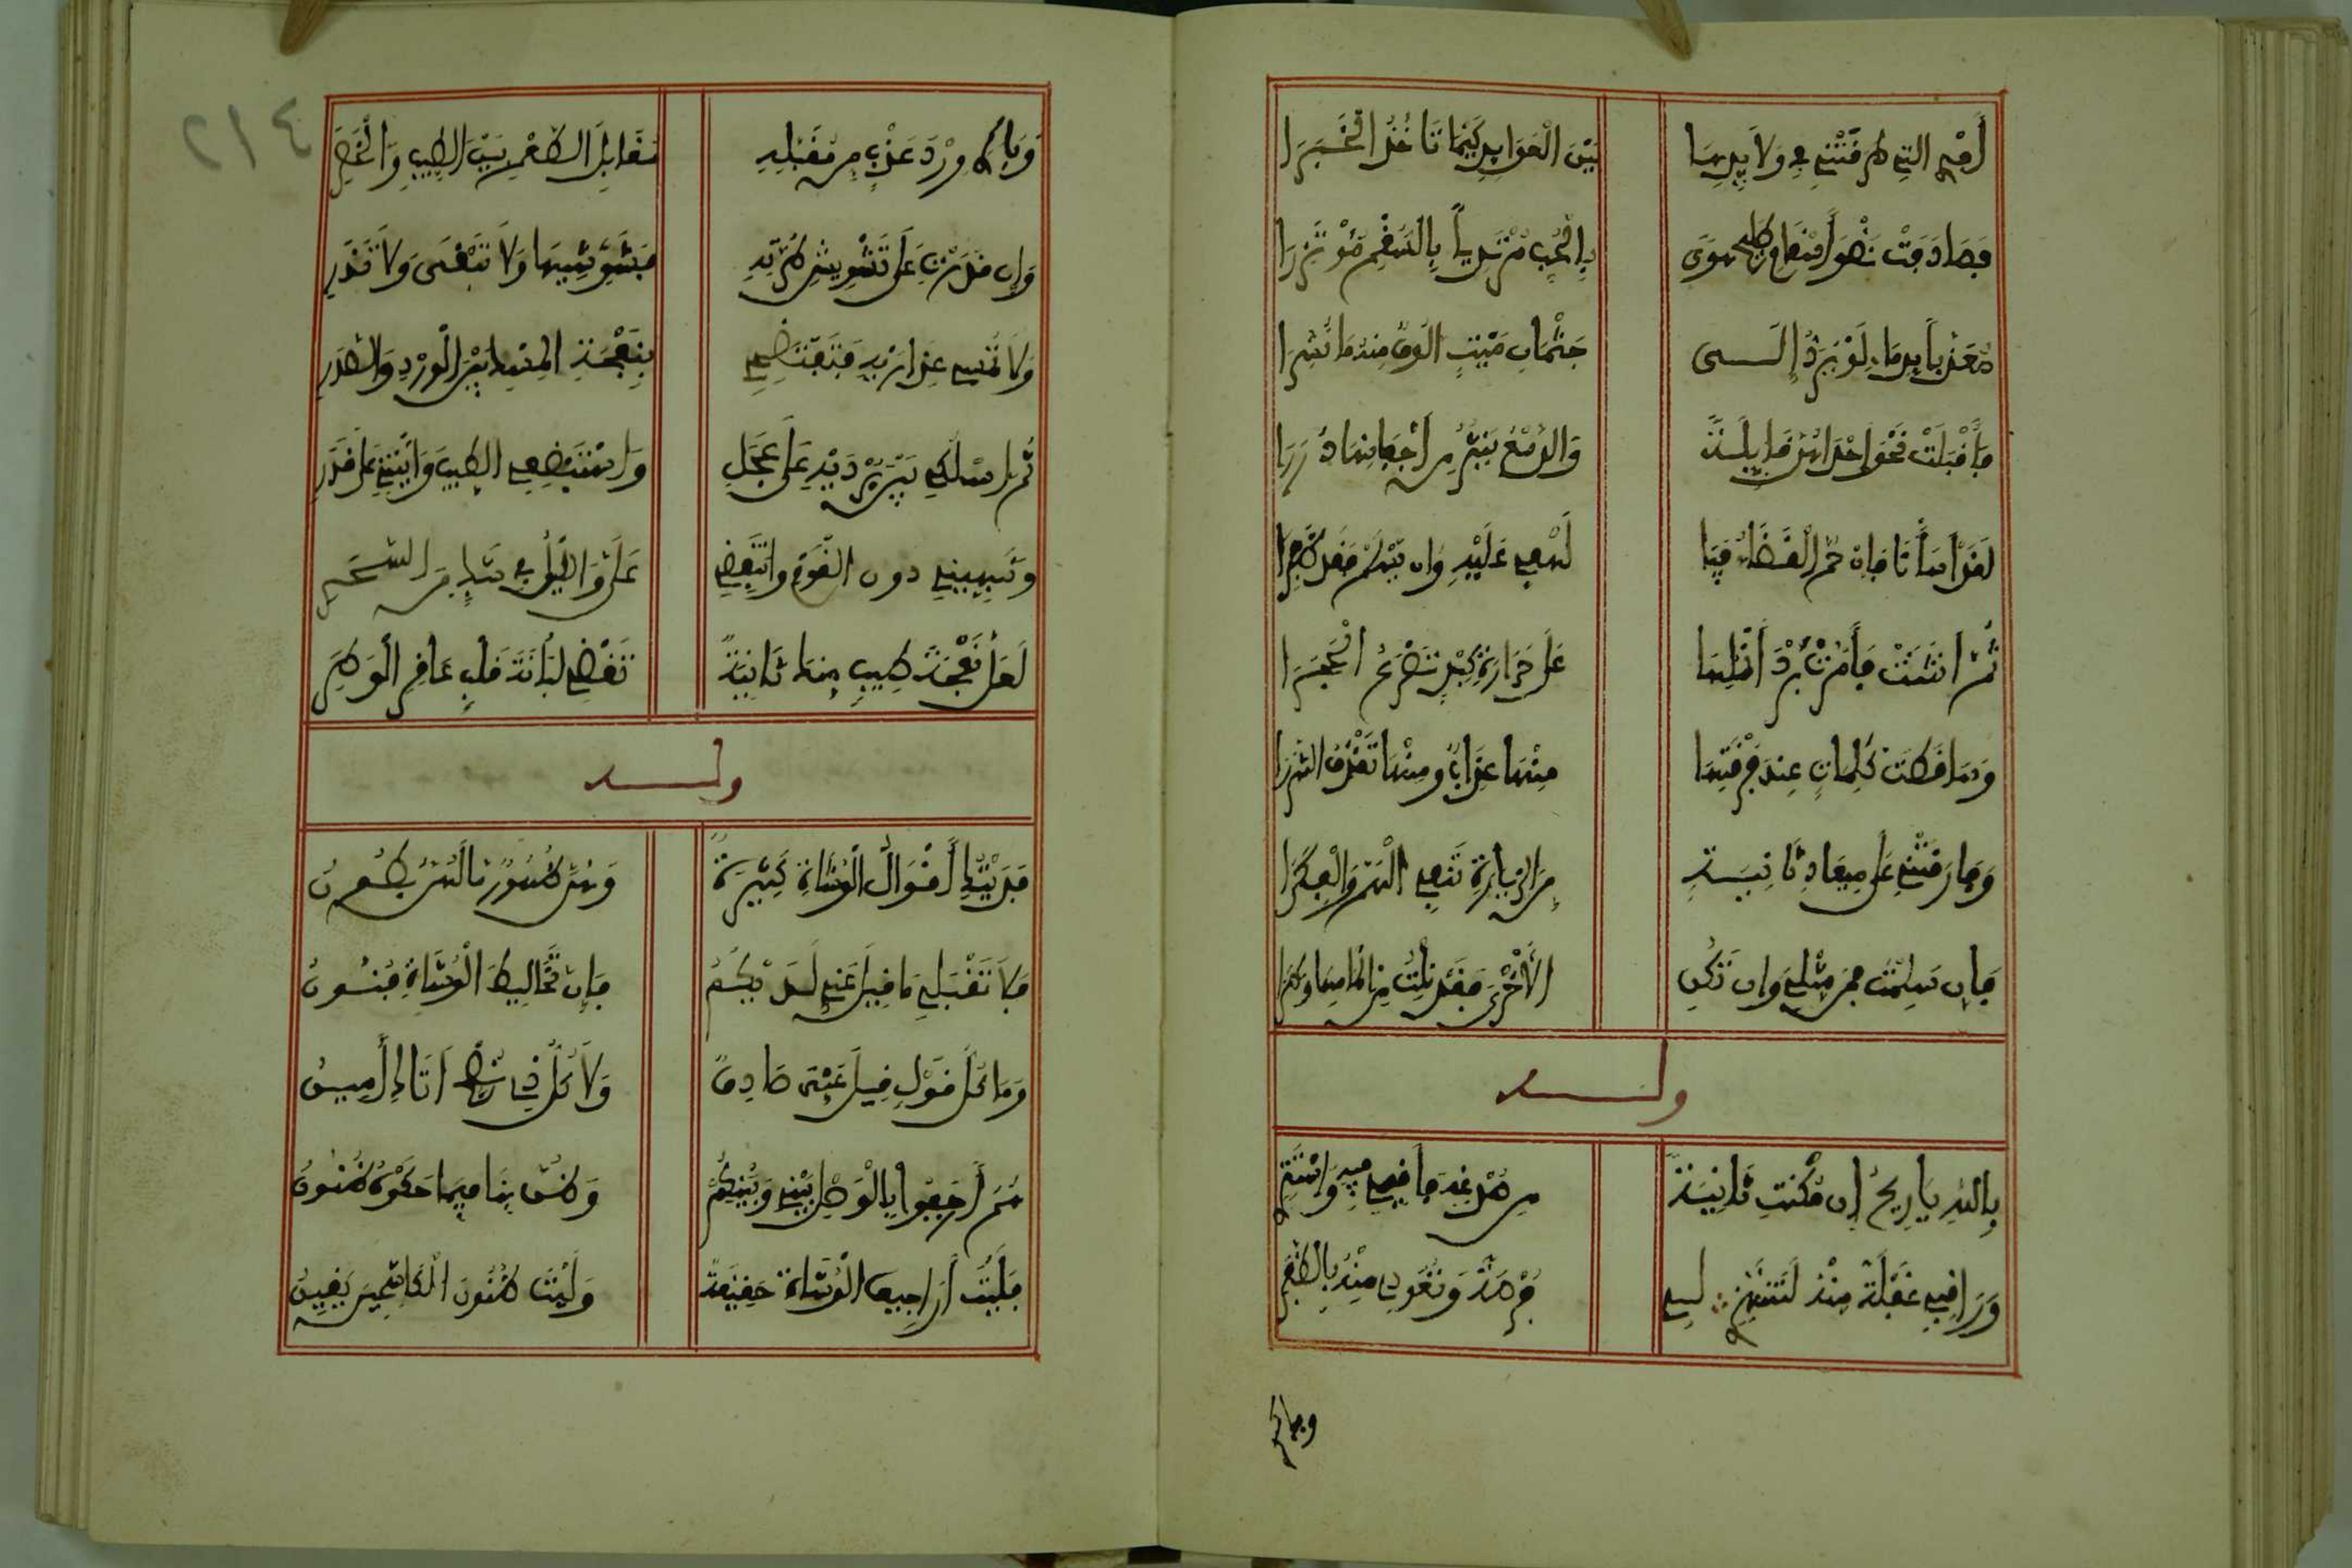 أفدي التي طرقتني في ولايدها بين العوايد كيما تأخذ الخبرا
فصادفت نضو أسقام طليح هوى بالحب مرتديا بالسقم مؤتزرا
معذبا بدماء لو يرد إلى جثمان ميت منه ما نشرا
فأقبلت نحو إحداهن قايلة والدمع ينثر من أجفانها دررا
لقد أسأنا فإن حم القضاء فيا لهفي عليه وإن يسلم فقد ظفرا
ثم انثنت فأمرت برد أنملها على حرارة كبد تضرم الحجرا
وساقطت كلمات عند فرقتها منها عذابا ومنها تقذف الشررا
وفارقتني على ميعاد ثانية من الزيارة تنفي الهم والفكرا
فإن سلمت فمن مثلي وإن تكن الأخرى فقد نلت من أيامها وطرا
وله
بالله يا ريح إن مكنت ثانية من صدغه فأقيمي فيه واستتري
وراقبي غفلة منه لتنتهزي لي فرصة وتعودي منه بالظفر
وباكر
٢١٤
وباكري ورد عذب من مقبله مقابل الطعم بين الطيب والخصر
وإن قدرت على تشويش طرته فشوشيها ولا تبقي ولا تذر
ولا تمسي عذاريه فتفتضحي بنفحة المسك بين الورد والصدر
ثم اسلكي بين برديه على عجل واستبضعي الطيب وايتيني على قدر
ونبهيني دون القوم وانتفضي علي والليل في شك من السحر
لعل نفحة طيب منك ثانية تقضي لبانة قلب عاقر الوطر
وله
فديتك أقوال الوشاة كثيرة
فلا تقبلي ما قيل عني لديكم فإن تخاليط الوشاة فنون
وما كل قول قيل عني صادقا ولا كل ذي نصح أتاك أمين
هم أرجفوا بالوصل بيني وبينكم وظنت بنا فيما حكوه ظنون
فليت أراجيف الوشاة حقيقة وليت ظنون الكاشحين يقين